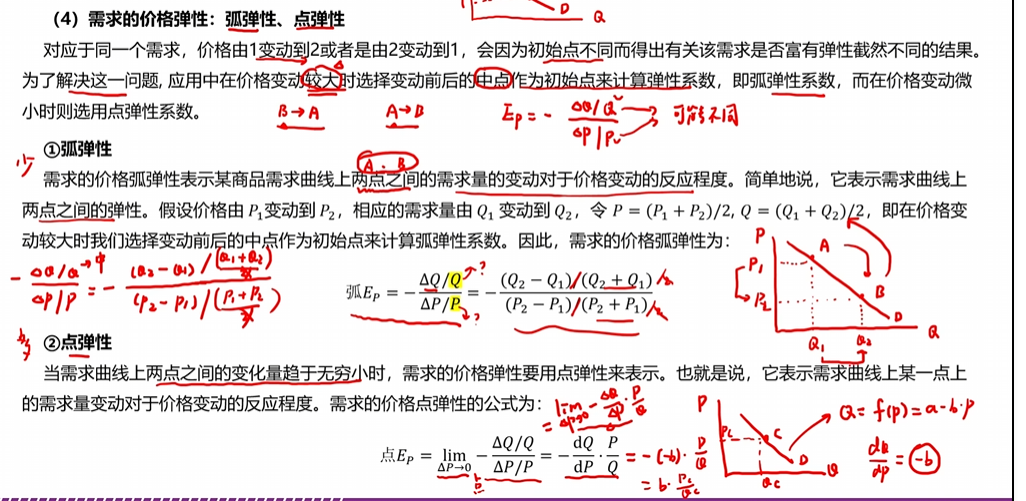 D
Q
（4）需求的价格弹性：弧弹性、点弹性
对应于同一个需求，价格由1变动到2或者是由2变动到1，会因为初始点不同而得出有关该需求是否富有弹性截然不同的结果。
为了解决这一问题, 应用中在价格变动较大时选择变动前后的中点作为初始点来计算弹性系数，即弧弹性系数，而在价格变动微
小时则选用点弹性系数。
B→A A→B Ep = - ΔQ/Q / ΔP/P 可能不同
①弧弹性
少 A、B
需求的价格弧弹性表示某商品需求曲线上两点之间的需求量的变动对于价格变动的反应程度。简单地说，它表示需求曲线上
两点之间的弹性。假设价格由 P₁变动到 P₂，相应的需求量由 Q₁ 变动到 Q₂，令 P = (P₁ + P₂)/2, Q = (Q₁ + Q₂)/2，即在价格变
动较大时我们选择变动前后的中点作为初始点来计算弧弹性系数。因此，需求的价格弧弹性为：
- (ΔQ/Q)/(ΔP/P) →中 = - ((Q₂-Q₁)/((Q₁+Q₂)/2))/((P₂-P₁)/((P₁+P₂)/2))
弧E_P = − (ΔQ/Q)/(ΔP/P) = − ((Q₂ − Q₁)/(Q₂ + Q₁))/((P₂ − P₁)/(P₂ + P₁))
? ? /2 /2
P A P₁ B P₂ D Q Q₁ Q₂
多
②点弹性
当需求曲线上两点之间的变化量趋于无穷小时，需求的价格弹性要用点弹性来表示。也就是说，它表示需求曲线上某一点上
的需求量变动对于价格变动的反应程度。需求的价格点弹性的公式为：
= lim ΔP→0 - ΔQ/ΔP · P/Q
点E_P = lim ΔP→0 − (ΔQ/Q)/(ΔP/P) = − dQ/dP · P/Q = -(-b) · P/Q
= b · Pc/Qc
P Pc C D Q Qc
Q = f(p) = a-b·p
dQ/dP = -b